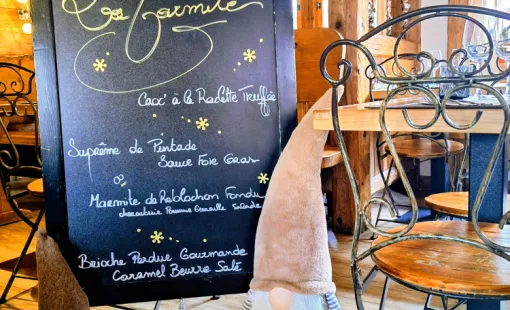 La Marmite
Croc' à la Raclette Truffée
Suprême de Pintade
Sauce Foie Gras
Marmite de Reblochon Fondu
charcuterie Pomme Grenaille Salade
Brioche Perdue Gourmande
Caramel Beurre Salé